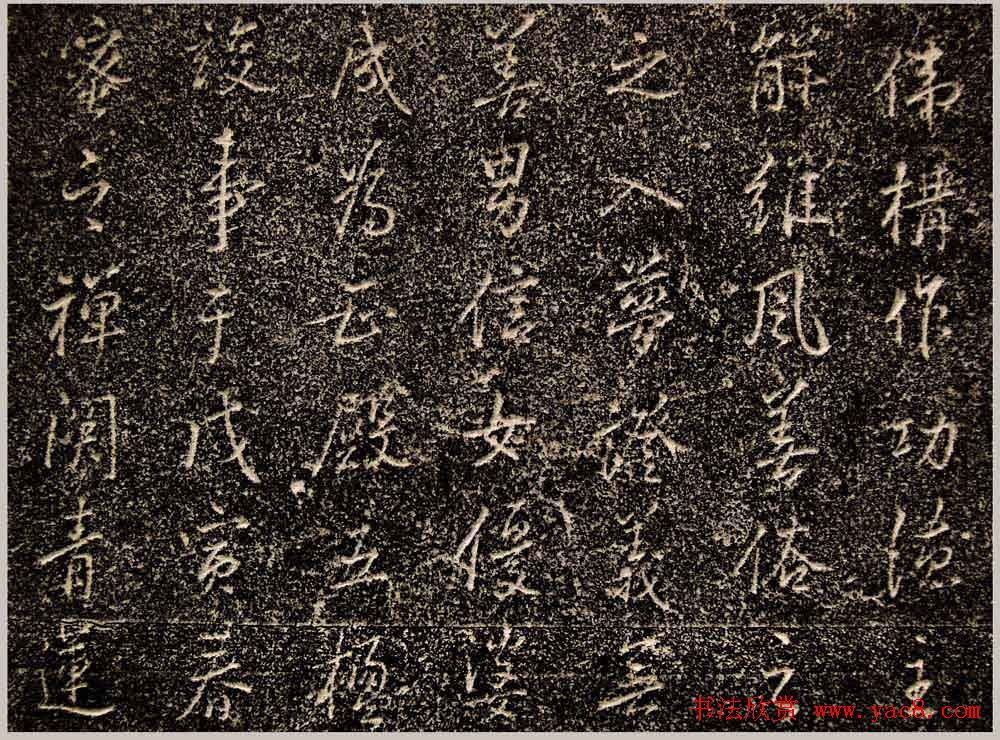 構作功德主
解維風善俗
之入夢證義
善男信女優婆
成為正殿五楹
竣事于戊寅春
禪關青蓮
书法欣赏 www.yac8.com